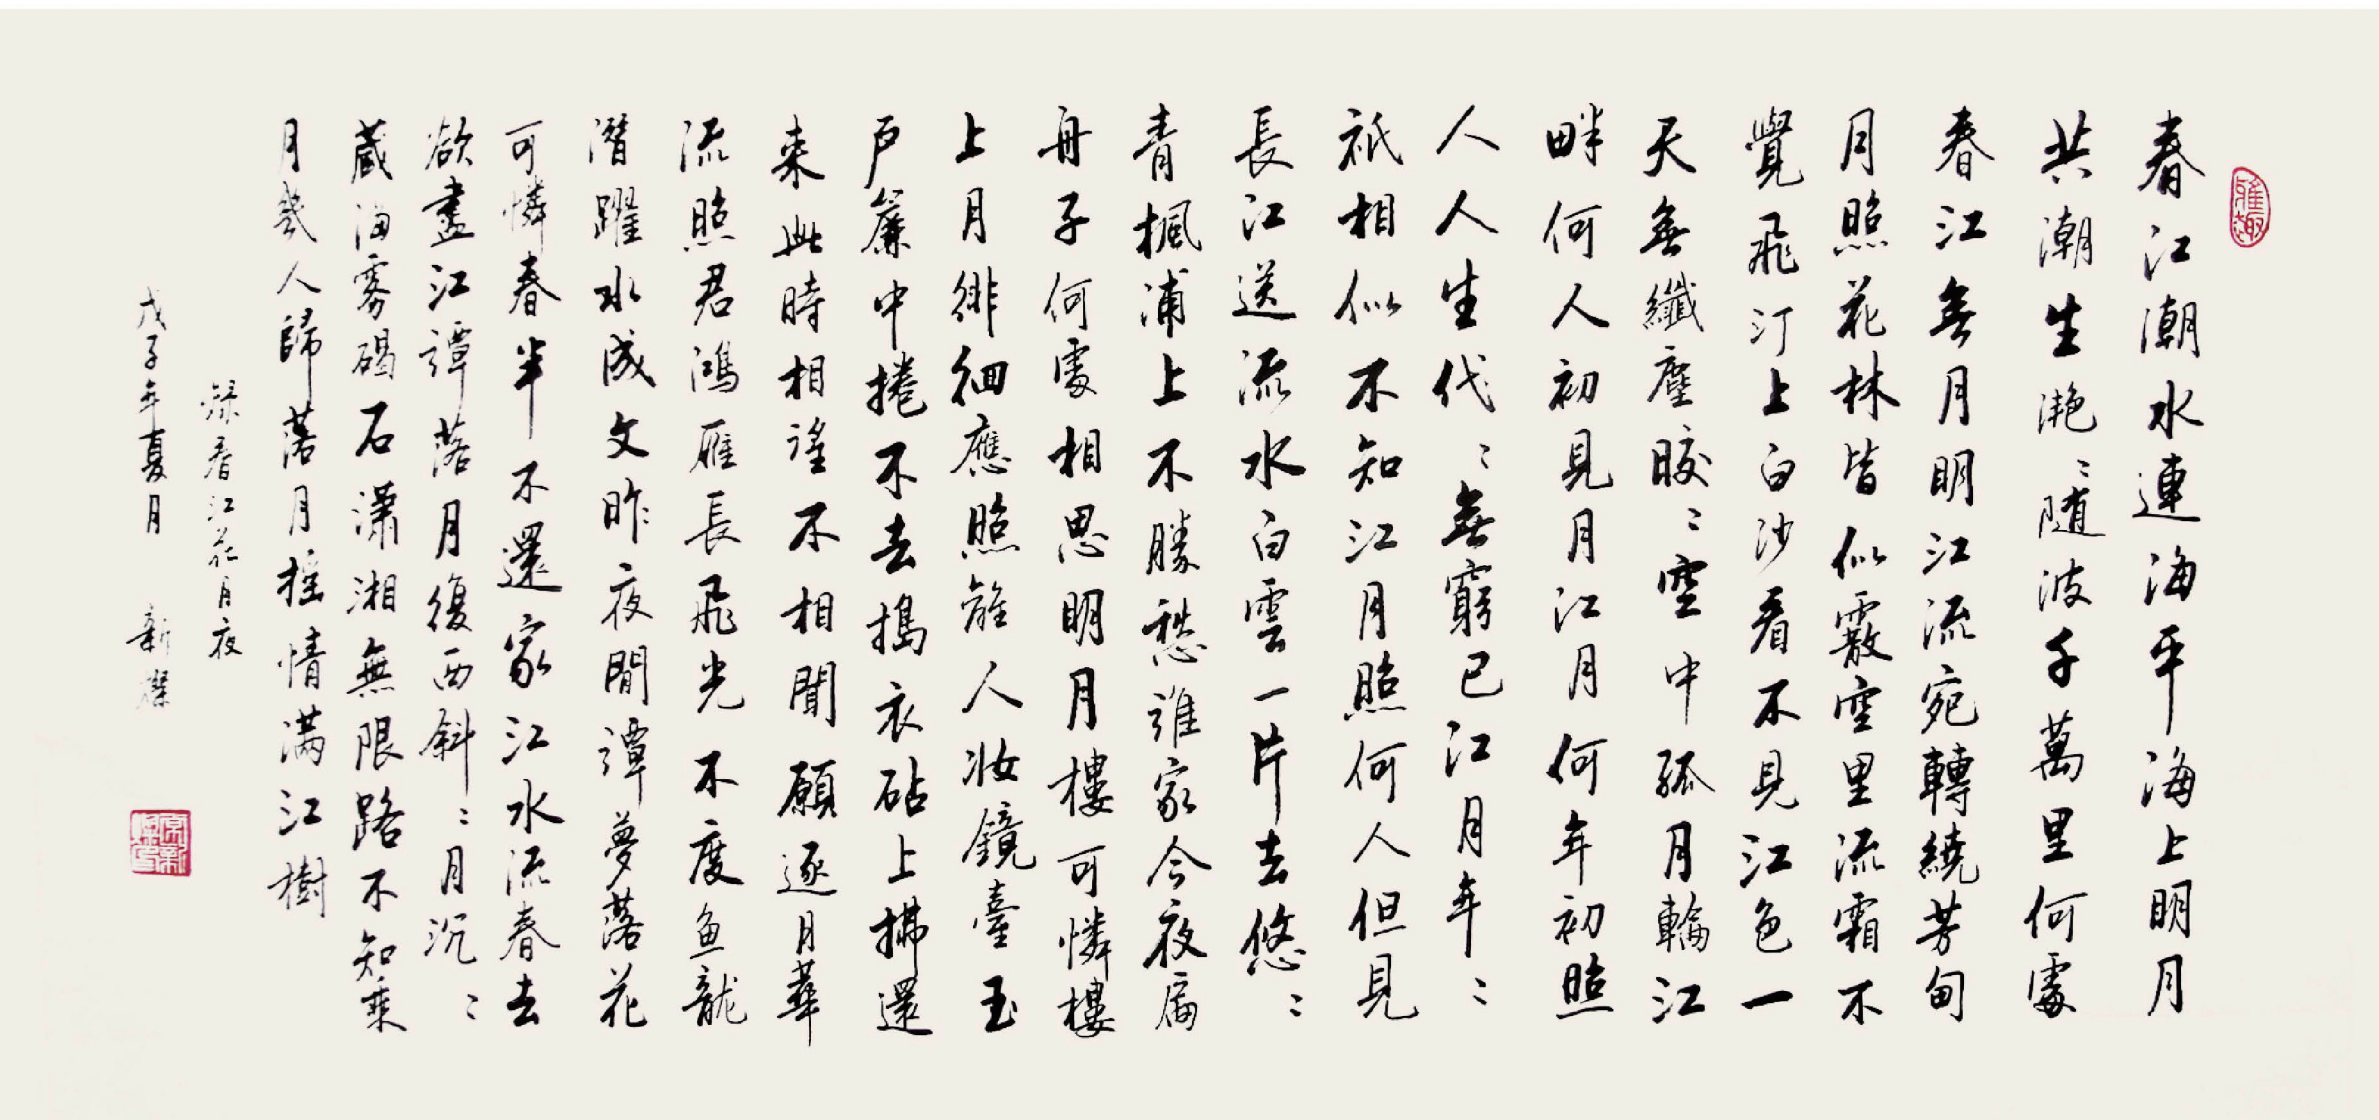 雅趣
春江潮水連海平海上明月
共潮生滟〻随波千萬里何處
春江無月明江流宛轉繞芳甸
月照花林皆似霰空里流霜不
覺飛汀上白沙看不見江色一
天無纖塵皎〻空中孤月輪江
畔何人初見月江月何年初照
人人生代〻無窮已江月年〻
祇相似不知江月照何人但見
長江送流水白雲一片去悠〻
青楓浦上不勝愁誰家今夜扁
舟子何處相思明月樓可憐樓
上月徘徊應照離人妝鏡臺玉
戶簾中捲不去搗衣砧上拂還
來此時相望不相聞願逐月華
流照君鴻雁長飛光不度鱼龍
潛躍水成文昨夜閒潭夢落花
可憐春半不還家江水流春去
欲盡江潭落月復西斜〻月沉〻
藏海雾碣石潇湘無限路不知乘
月幾人歸落月摇情满江樹
錄春江花月夜
戊子年夏月 新燦